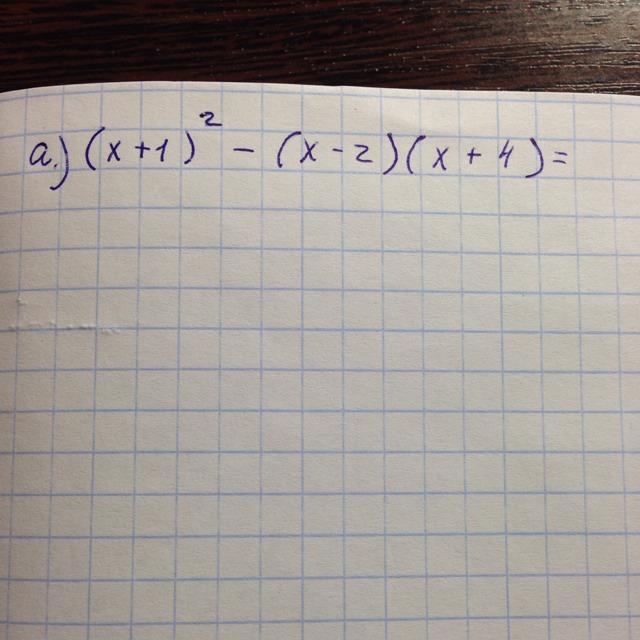 a.) (x+1)² - (x-2)(x+4)=